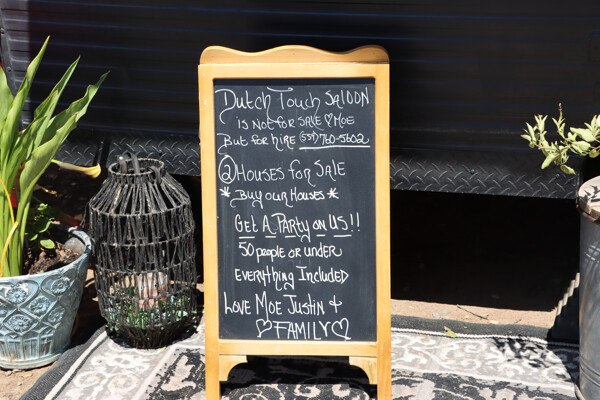 Dutch Touch Saloon
is not for sale ♡ Moe
But for hire (559) 760-5602
② Houses for Sale
* Buy our Houses *
Get A Party on US!!
50 people or under
Everything Included
Love Moe Justin +
♡ Family ♡